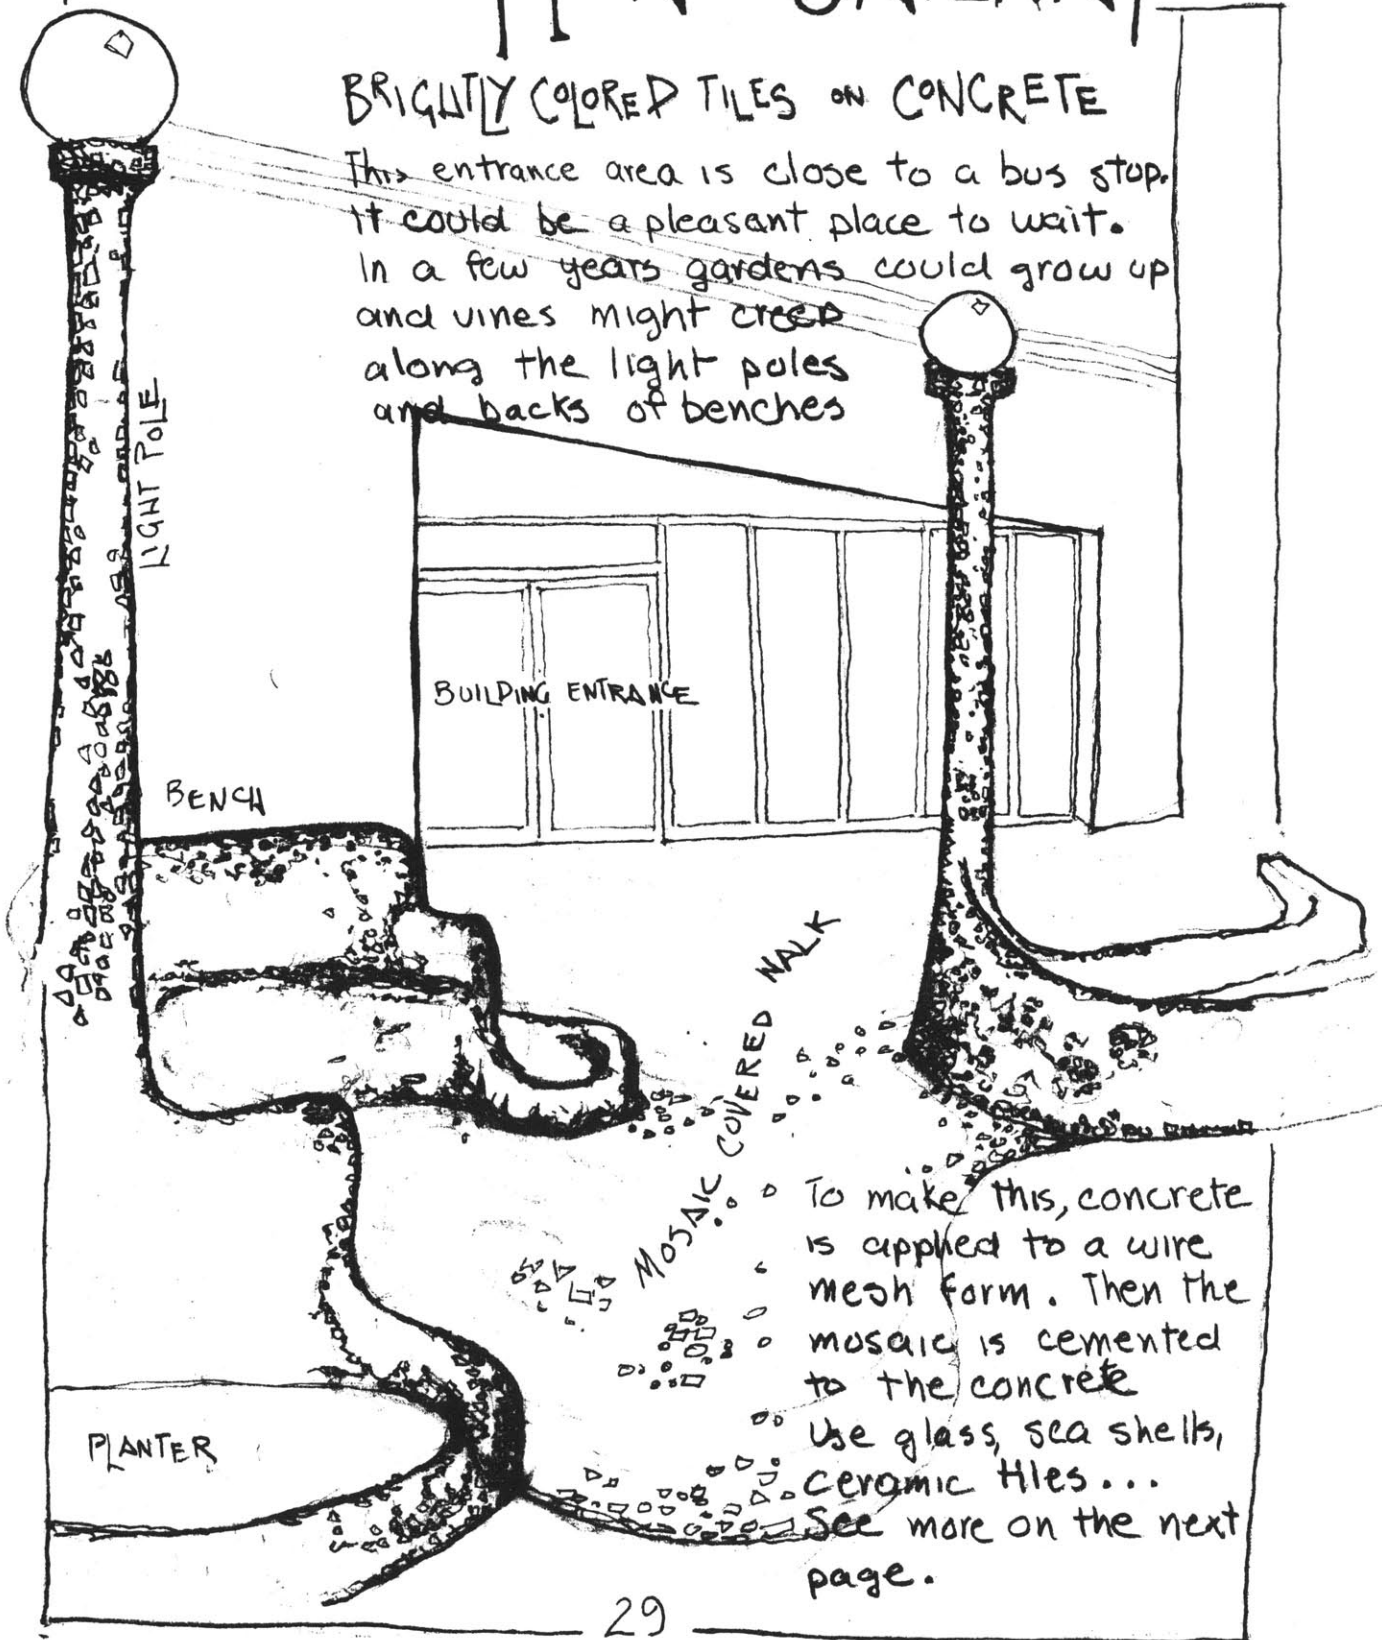 BRIGHTLY COLORED TILES ON CONCRETE
This entrance area is close to a bus stop.
It could be a pleasant place to wait.
In a few years gardens could grow up
and vines might creep
along the light poles
and backs of benches
LIGHT POLE
BUILDING ENTRANCE
BENCH
MOSAIC COVERED WALK
To make this, concrete
is applied to a wire
mesh form. Then the
mosaic is cemented
to the concrete
Use glass, sea shells,
ceramic tiles...
See more on the next
page.
PLANTER
29